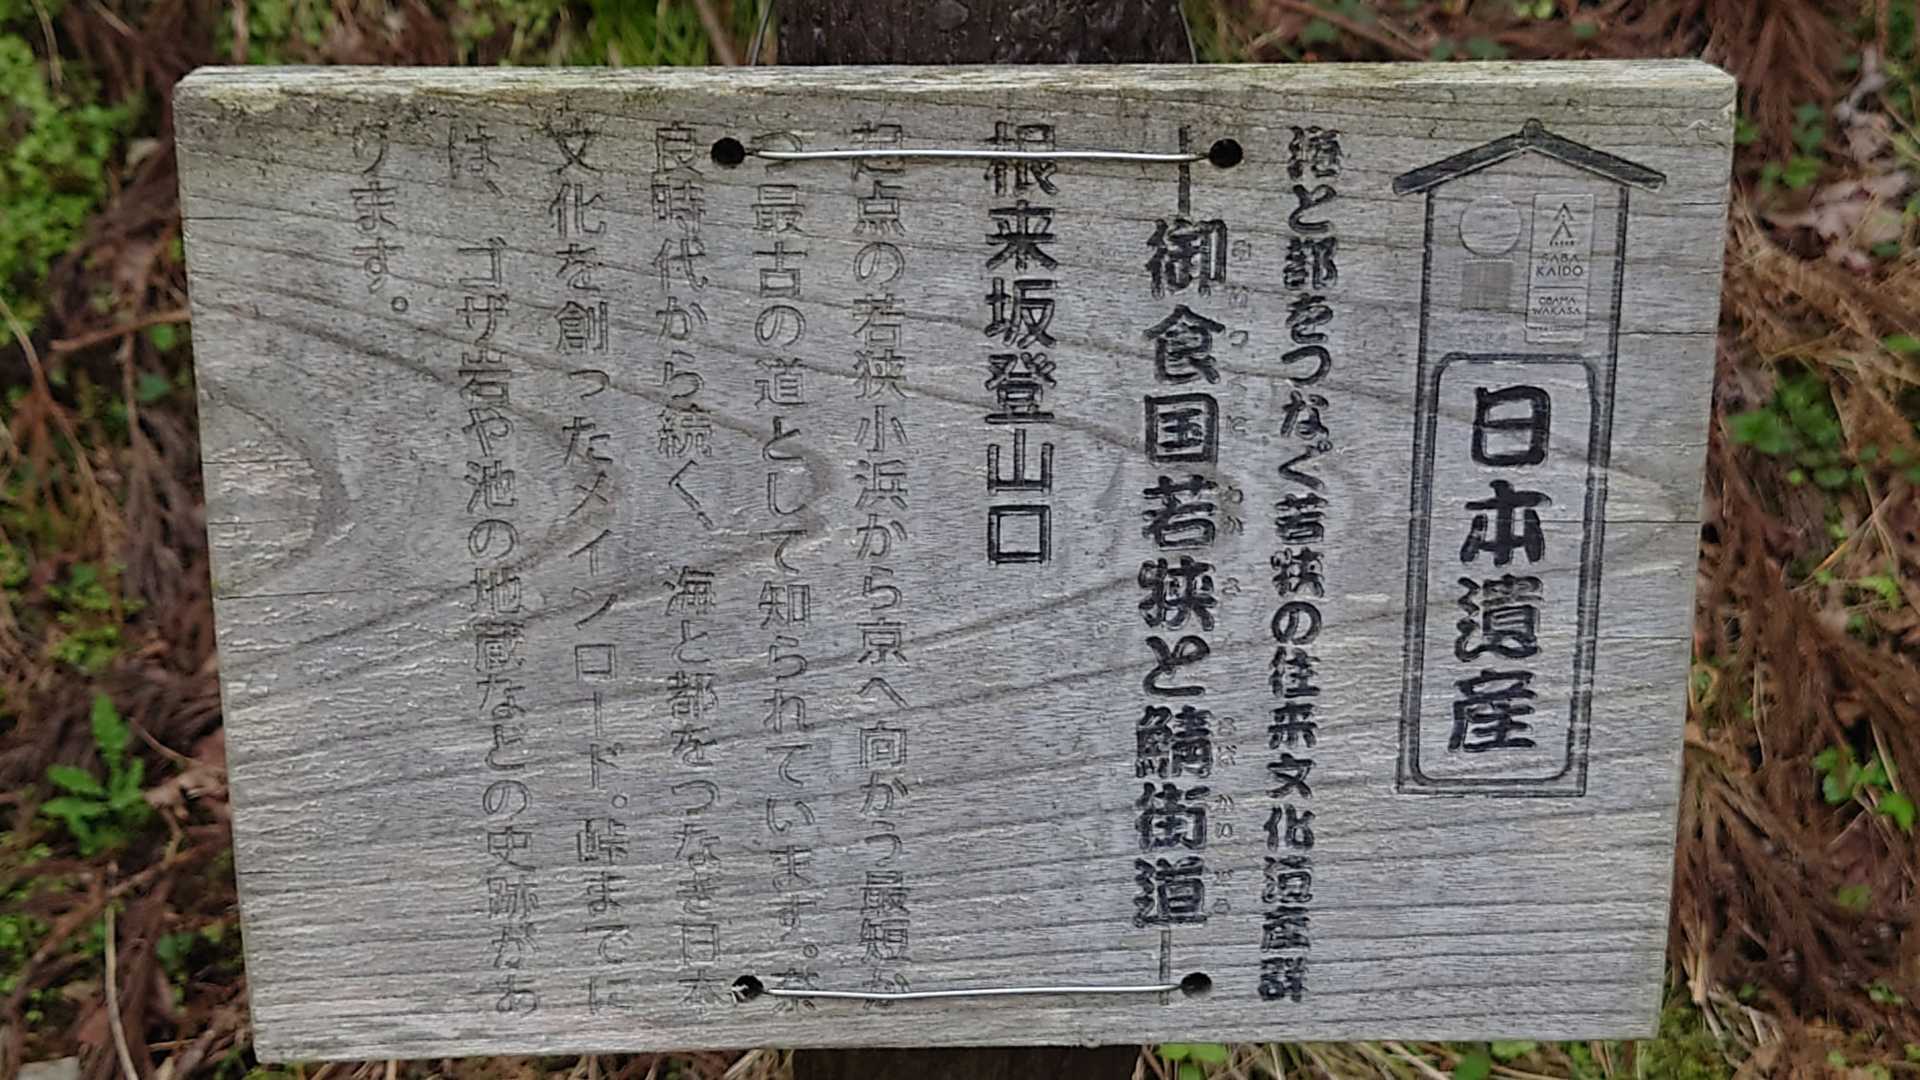 日本遺産
SABA
KAIDO
OBAMA
WAKASA
海と都をつなぐ若狭の往来文化遺産群
―御食国若狭と鯖街道―
みけつくに わかさ さば かいどう
根来坂登山口
起点の若狭小浜から京へ向かう最短か
つ最古の道として知られています。奈
良時代から続く、海と都をつなぎ日本
文化を創ったメインロード。峠までに
は、ゴザ岩や池の地蔵などの史跡があ
ります。